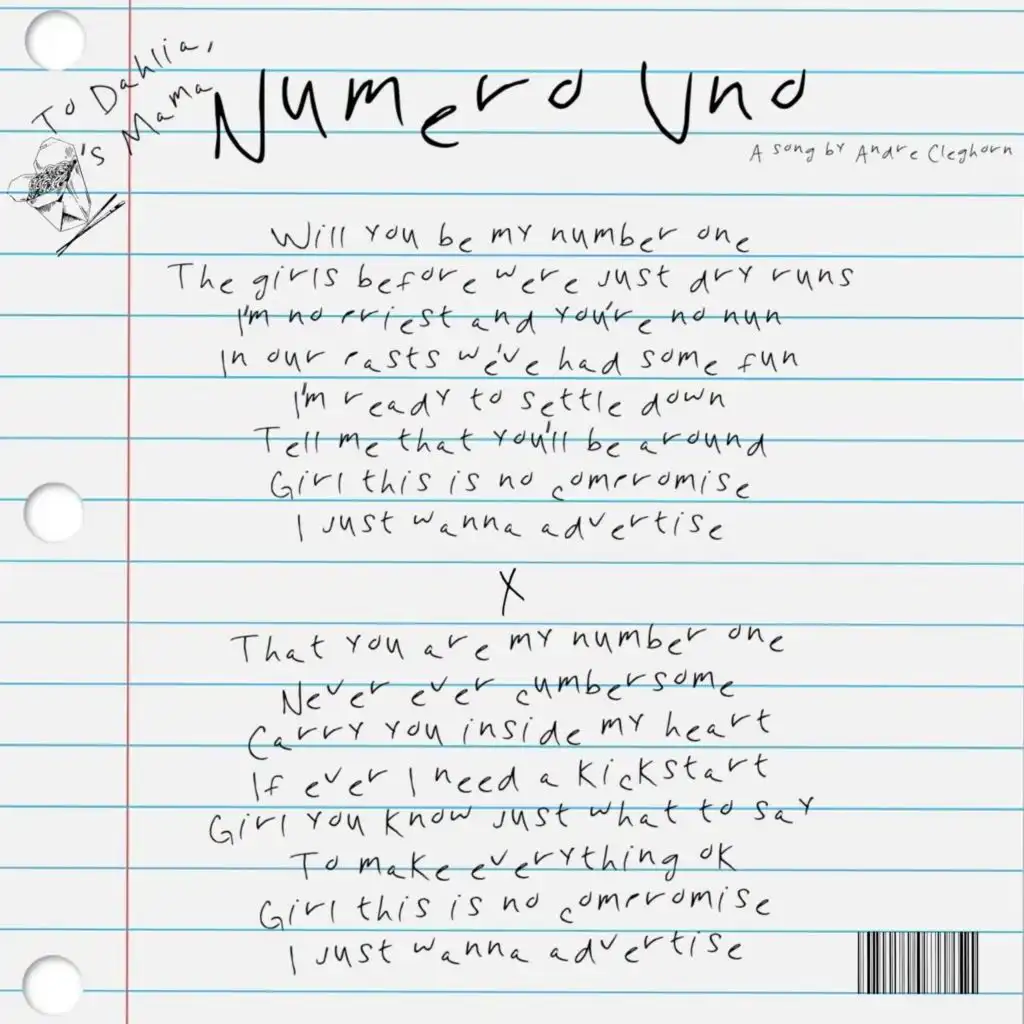 To Dahlia,
's Mama
Numero Uno
A song by Andre Cleghorn
Will you be my number one
The girls before were just dry runs
I'm no priest and you're no nun
In our pasts we've had some fun
I'm ready to settle down
Tell me that you'll be around
Girl this is no compromise
I just wanna advertise
X
That you are my number one
Never ever cumbersome
Carry you inside my heart
If ever I need a kickstart
Girl you know just what to say
To make everything ok
Girl this is no compromise
I just wanna advertise